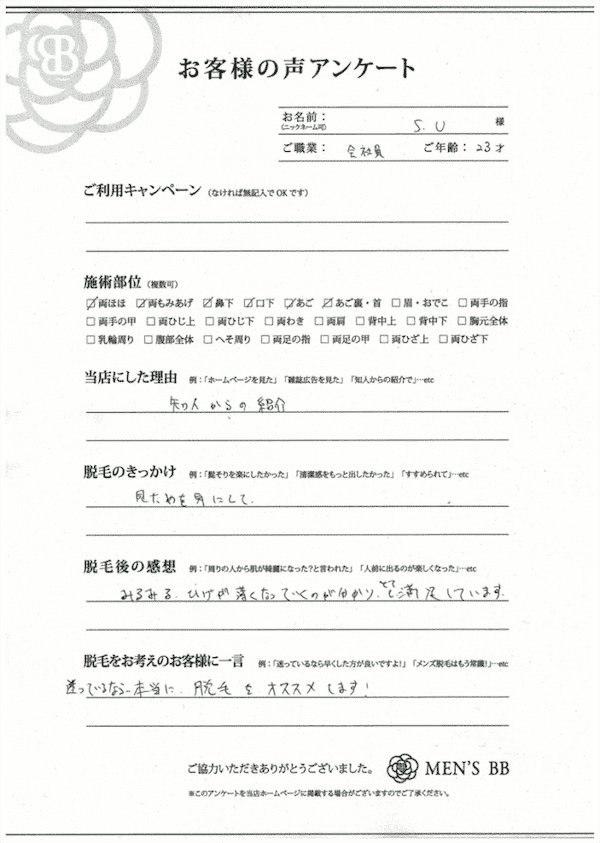 BB
お客様の声アンケート
お名前：
(ニックネーム可)
S.U 様
ご職業： 会社員 ご年齢： 23才
ご利用キャンペーン（なければ無記入でOKです）
施術部位（複数可）
☑両ほほ ☑両もみあげ ☑鼻下 ☑口下 ☑あご ☑あご裏・首 □眉・おでこ □両手の指
□両手の甲 □両ひじ上 □両ひじ下 □両わき □両肩 □背中上 □背中下 □胸元全体
□乳輪周り □腹部全体 □へそ周り □両足の指 □両足の甲 □両ひざ上 □両ひざ下
当店にした理由 例：「ホームページを見た」「雑誌広告を見た」「知人からの紹介で」…etc
知人からの紹介
脱毛のきっかけ 例：「髭そりを楽にしたかった」「清潔感をもっと出したかった」「すすめられて」…etc
見ためを気にして.
脱毛後の感想 例：「周りの人から肌が綺麗になった？と言われた」「人前に出るのが楽しくなった」…etc
みるみる、ひげが薄くなっていくのが分かり、とても満足しています.
脱毛をお考えのお客様に一言 例：「迷っているなら早くした方が良いですよ！」「メンズ脱毛はもう常識！」…etc
迷っているなら、本当に、脱毛をオススメします！
ご協力いただきありがとうございました。 MEN'S BB
※このアンケートを当店ホームページに掲載する場合がございますのでご了承ください。